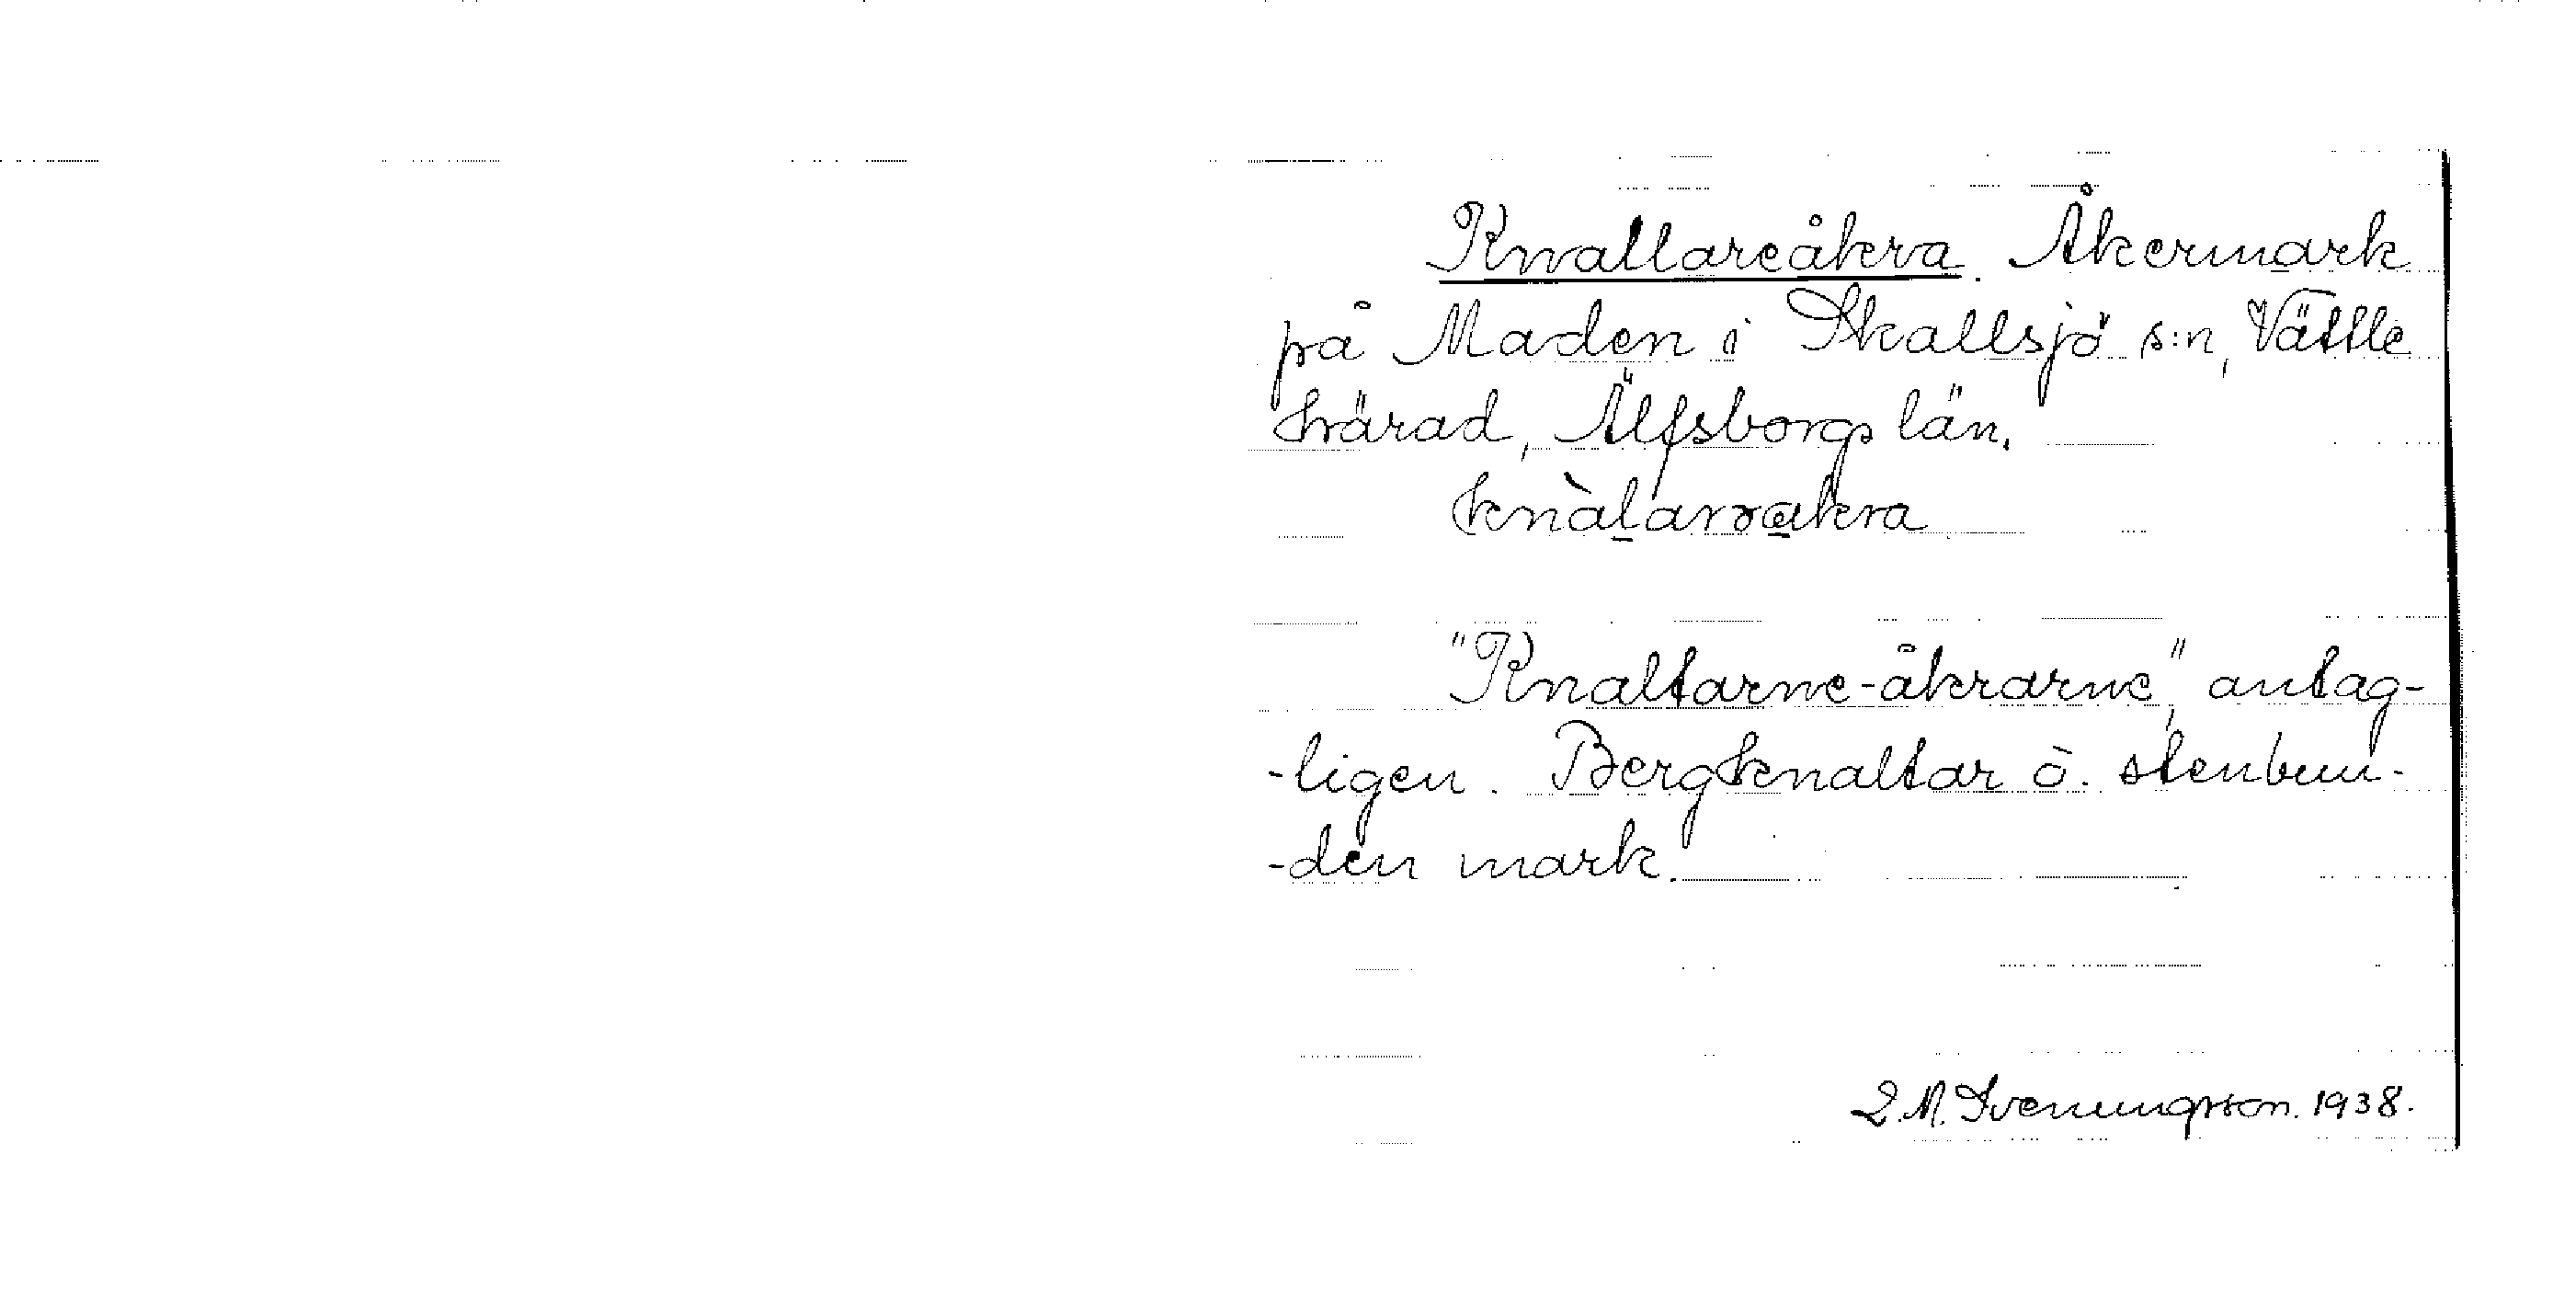 Knallareåkra. Åkermark
på Maden i Skallsjö s:n, Vättle
härad, Älfsborgs län.
"Knaltarne-åkrarne", antag-
-ligen. Bergknaltar o. stenbun-
-den mark.
L. M. Svenungsson. 1938.